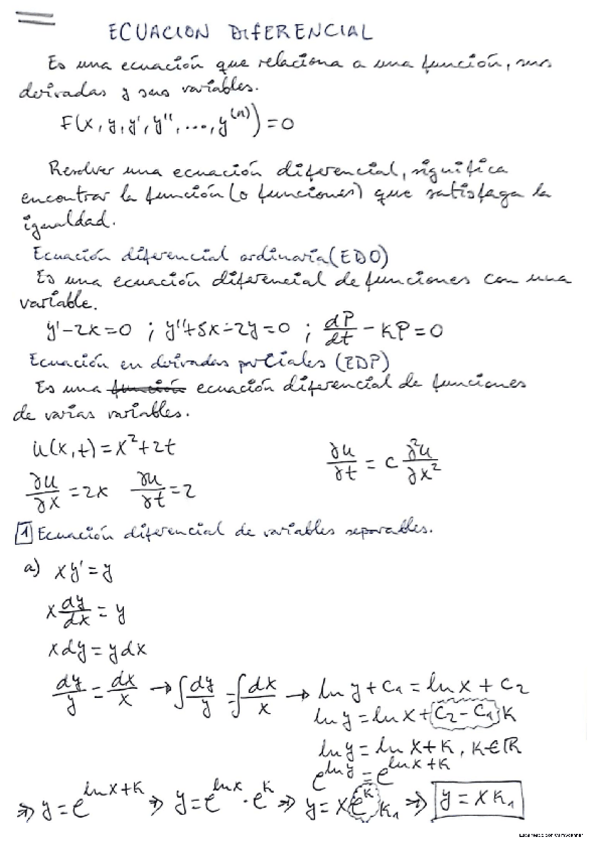 ECUACION DIFERENCIAL
Es una ecuación que relaciona a una función, sus
derivadas y sus variables.
F(x, y, y', y'', ..., y^(n)) = 0
Resolver una ecuación diferencial, significa
encontrar la función (o funciones) que satisfaga la
igualdad.
Ecuación diferencial ordinaria (EDO)
Es una ecuación diferencial de funciones con una
variable.
y' - 2x = 0 ; y'' + 5x - 2y = 0 ; dP/dt - KP = 0
Ecuación en derivadas parciales (EDP)
Es una función ecuación diferencial de funciones
de varias variables.
u(x,t) = x² + 2t
∂u/∂t = c ∂²u/∂x²
∂u/∂x = 2x ∂u/∂t = 2
1 Ecuación diferencial de variables separables.
a) xy' = y
x dy/dx = y
x dy = y dx
dy/y = dx/x → ∫ dy/y = ∫ dx/x → ln y + C₁ = ln x + C₂
ln y = ln x + C₂ - C₁ K
ln y = ln x + K, K ∈ ℝ
e^(ln y) = e^(ln x + K)
⇒ y = e^(ln x + K) ⇒ y = e^(ln x) · e^K ⇒ y = x e^K K₁ ⇒ y = x K₁